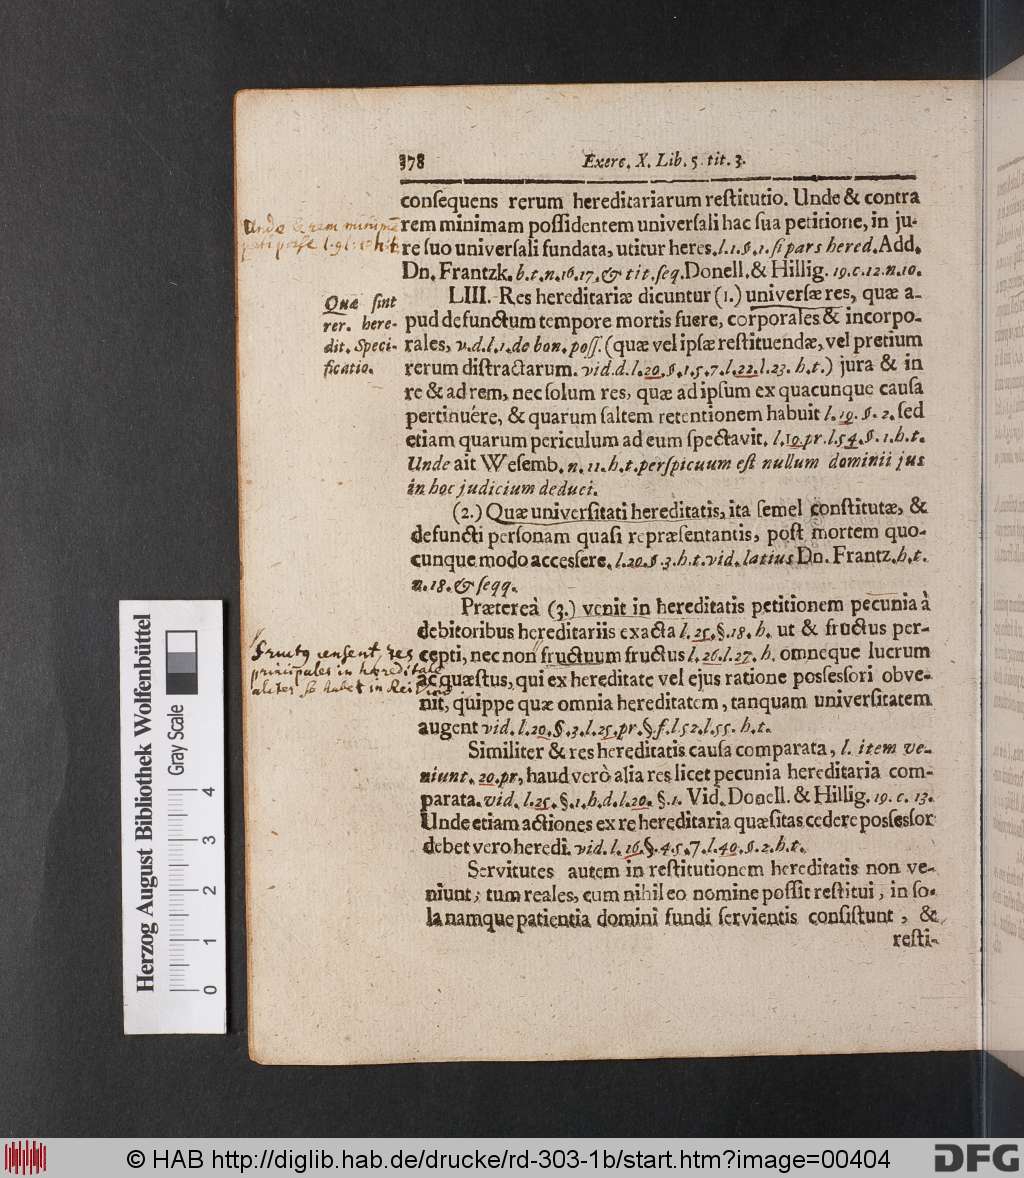 378
Exerc. X. Lib. 5. tit. 3.
consequens rerum hereditariarum restitutio. Unde & contra
rem minimam possidentem universali hac sua petitione, in ju-
re suo universali fundata, utitur heres, l. 1. §. 1. si pars hered. Add.
Dn. Frantzk. h. t. n. 16. 17. & tit. seq. Donell. & Hillig. 19. c. 12. n. 10.
Unde & rem minimā
LIII. Res hereditariæ dicuntur (1.) universæ res, quæ a-
pud defunctum tempore mortis fuere, corporales & incorpo-
rales, v. d. l. 1. de bon. poss. (quæ vel ipsæ restituendæ, vel pretium
rerum distractarum. vid. d. l. 20. §. 1. 5. 7. l. 22. l. 23. h. t.) jura & in
re & ad rem, nec solum res, quæ ad ipsum ex quacunque causa
pertinuére, & quarum saltem retentionem habuit l. 19. §. 2. sed
etiam quarum periculum ad eum spectavit, l. 19. pr. l. 54. §. 1. h. t.
Unde ait Wesemb. n. 11. h. t. perspicuum est nullum dominii jus
in hoc judicium deduci.
Quæ sint
rer. here-
dit. Speci-
ficatio.
(2.) Quæ universitati hereditatis, ita semel constitutæ, &
defuncti personam quasi repræsentantis, post mortem quo-
cunque modo accessere, l. 20. §. 3. h. t. vid. latius Dn. Frantz. h. t.
n. 18. & seqq.
Prætereà (3.) venit in hereditatis petitionem pecunia à
debitoribus hereditariis exacta l. 25. §. 18. h. ut & fructus per-
cepti, nec non fructuum fructus l. 26. l. 27. h. omneque lucrum
ac quæstus, qui ex hereditate vel ejus ratione possessori obve-
nit, quippe quæ omnia hereditatem, tanquam universitatem
augent vid. l. 20. §. 3. l. 25. pr. §. f. l 52. l. 55. h. t.
Fructꝰ censent. res
principales in hereditate
aliter se habet in Rei
Similiter & res hereditatis causa comparata, l. item ve-
niunt. 20. pr, haud verò alia res licet pecunia hereditaria com-
parata. vid. l. 25. §. 1. h. d. l. 20. §. 1. Vid. Donell. & Hillig. 19. c. 13.
Unde etiam actiones ex re hereditaria quæsitas cedere possessor
debet vero heredi. vid. l. 16. §. 4. 5. 7. l. 40. §. 2. h. t.
Servitutes autem in restitutionem hereditatis non ve-
niunt; tum reales, cum nihil eo nomine possit restitui, in so-
la namque patientia domini fundi servientis consistunt, &
resti-
Herzog August Bibliothek Wolfenbüttel
Gray Scale
0 1 2 3 4
© HAB http://diglib.hab.de/drucke/rd-303-1b/start.htm?image=00404
DFG